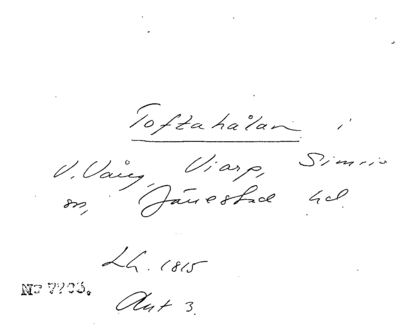 Toftahålan i
V. Vång, Viarp, Simris
sn, Järrestad hd.
Lh. 1815
No 7703.
Akt 3.